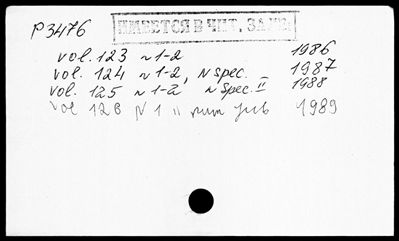 P3476 ИМЕЕТСЯ В ЧИТ. ЗАЛЕ
vol. 123 N 1-2 1986
vol. 124 N 1-2, N spec. I 1987
vol. 125 N 1-2 N spec. II 1988
vol 126 N 1 1989